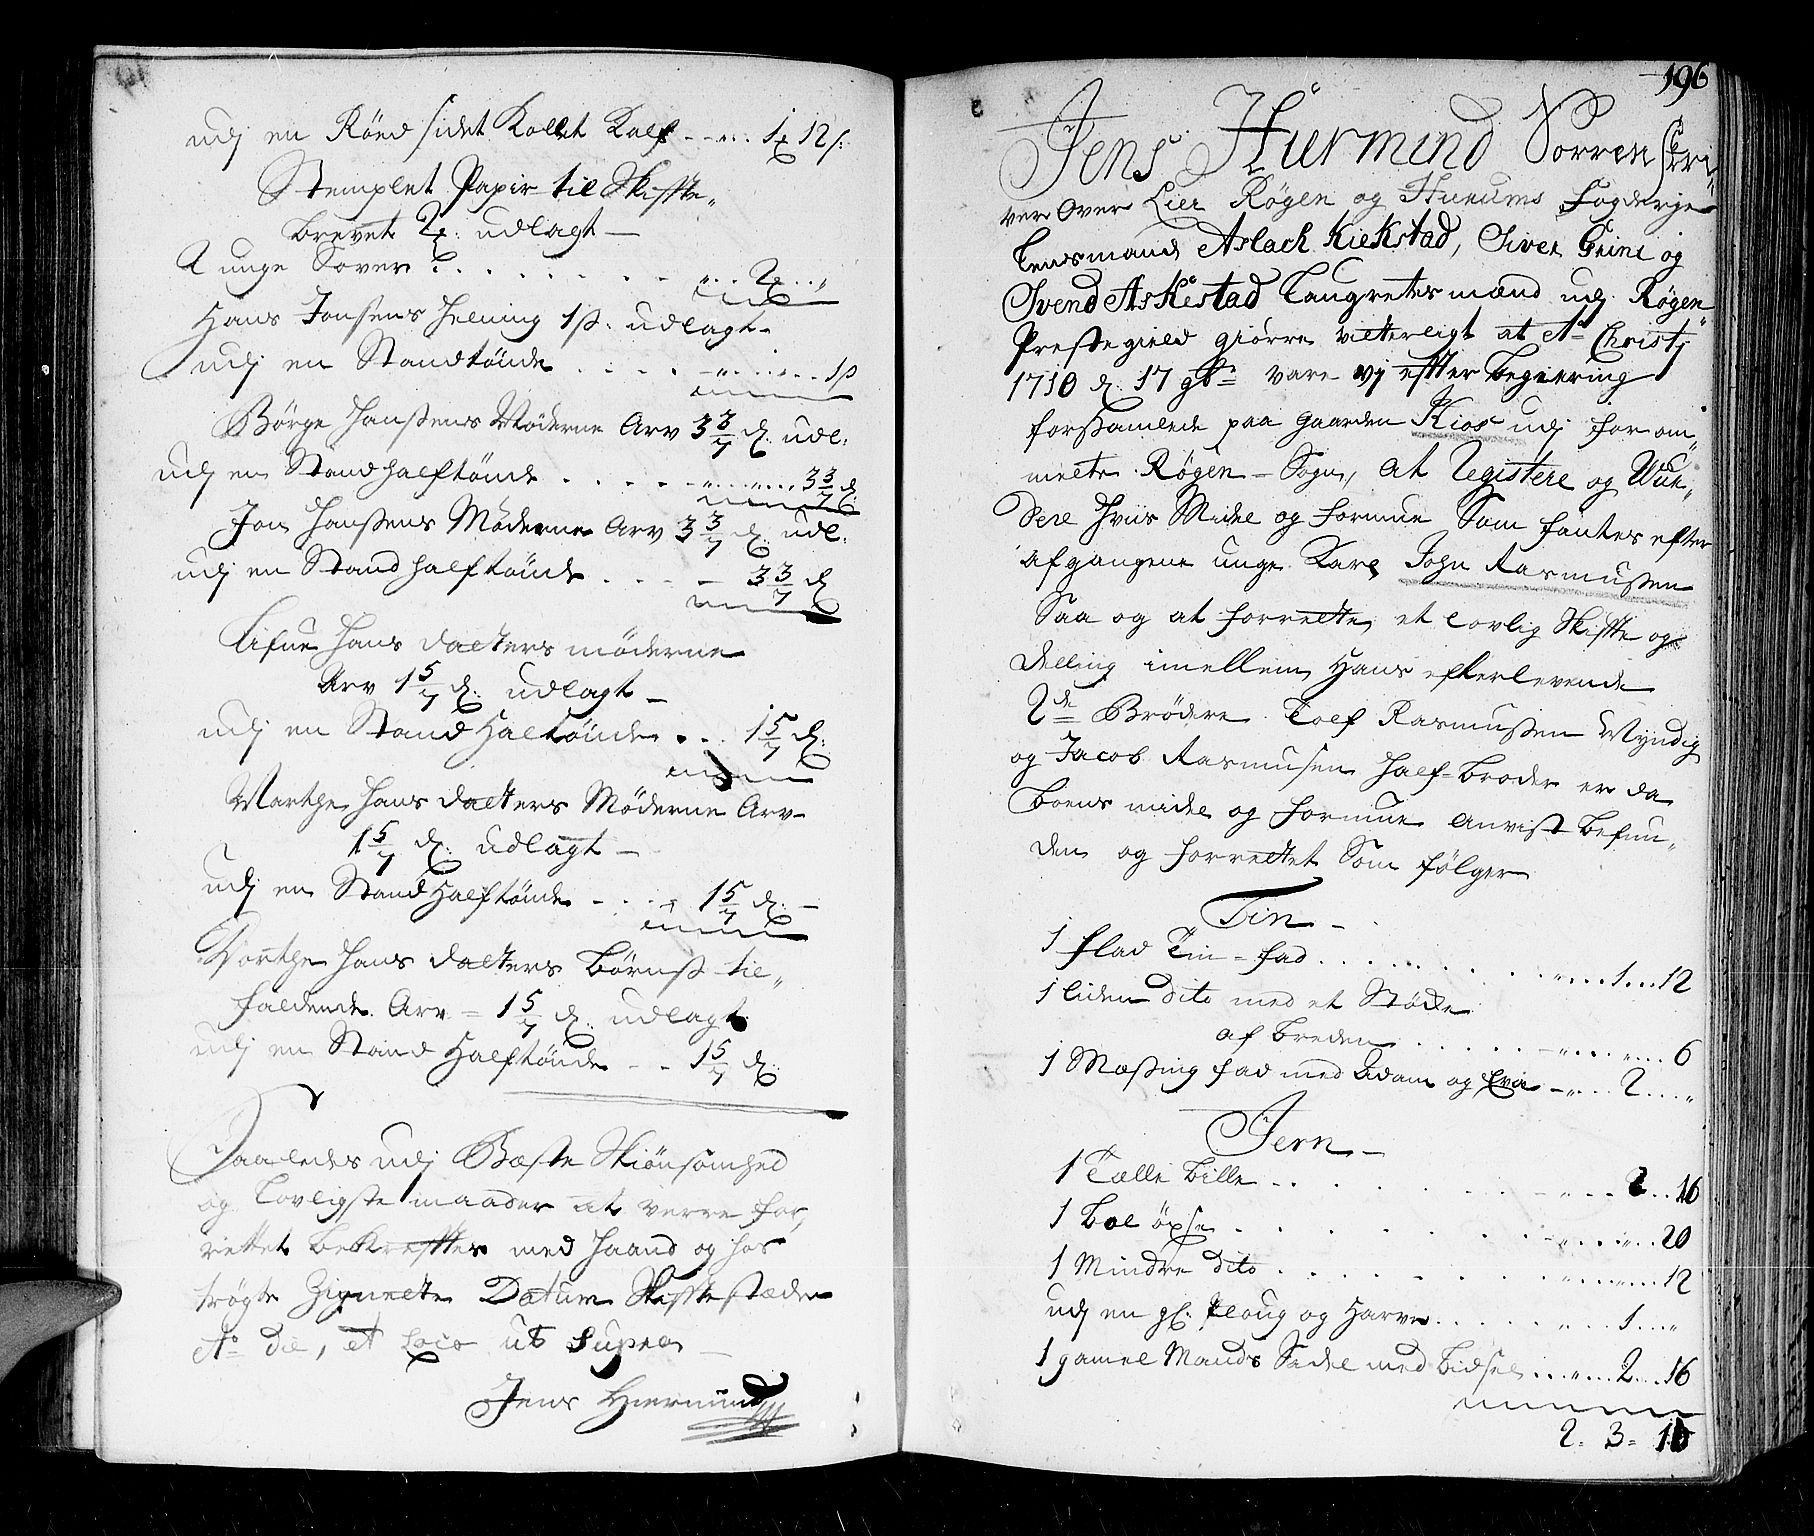 udj en Röed sidet Kollet Kalf - - ... 1 ... 12 s:
Stemplet Papir til Skiffte„
brevet 2 ... udlagt —
2 unge Sover ... 2 ... „
Hans Jonsens helning 1 ß: udlagt
udj en Standtönde . . . . ... 1 ß
Börge Hanßens Møderne Arv 3 3/7 d: udl:
udj en Stand halftönde . . . . . ... 3 3/7 d
Jon Hanßens Møderne Arv 3 3/7 d: udl:
udj en Stand halftönde . . . . — 3 3/7 d
Hans datters møderne
Arv 1 5/7 d: udlagt —
udj en Stand Haltönde . . . 1 5/7 d:
Marthe Hans datters Møderne Arv
1 5/7 d: udlagt —
udj en Stand Halftönde - . . . 1 5/7 d: —
Dorthe Hans datters børnß til„
faldende Arv = 1 5/7 d: udlagt
udj en Stand Halftönde - . 1 5/7 d:
Saaledes udj Bæste Skiönsomhed
og Lovligste maader at verre for„
rettet bekreffter med Haand og hos
trögte Zignette Datum Skiffte stæden
Ao die, et Loco ut Supra —
Jens Hiermind
196
Jens Hurmind Sorren Scri„
ver over Lier Røgen og Hurums Fogderje
Lensmand Aslach Kiekstad, Siver Grini og
Svend Askestad Laugretes mænd udj Røgen
Prestegield giørre vitterligt at Ao Christj
1710 d: 17 9br: vare vj effter begiering
forsamlede paa gaarden Kios udj for om„
melte Røgen = Sogn, at Registere og Wur„
dere Hviis Midel og formue Som fantes efter
afgangene unge Karl John Rasmusßen
Saa og at forrette et Lovlig Skiffte og
Delling imellem Hans efterlevende
2de Brödre Tolf Rasmusßen Myndig
og Jacob Rasmusen half=broder er da
boens midel og formue anvist befun„
den og forrettet Som følger
Tin —
1 flad Tin = fad . . . . . . . . ... 1 ... 12
1 liden dito med et Støcke
af breden . . . . . ... 6
1 Meßing fad med Adam og Eva - ... 2 ... „
Jern —
1 Tælle bille - . . . . . . ... 2 .. 16
1 bol öxse . . . . . . . ... 20
1 Mindre dito . . . . . . . ... 12
udj en gl: Ploug og Harve . . . . . ... 1 ... „
1 gamel Mands Sadel med bidsel ... 2 ... 16
2 = 3 = 16